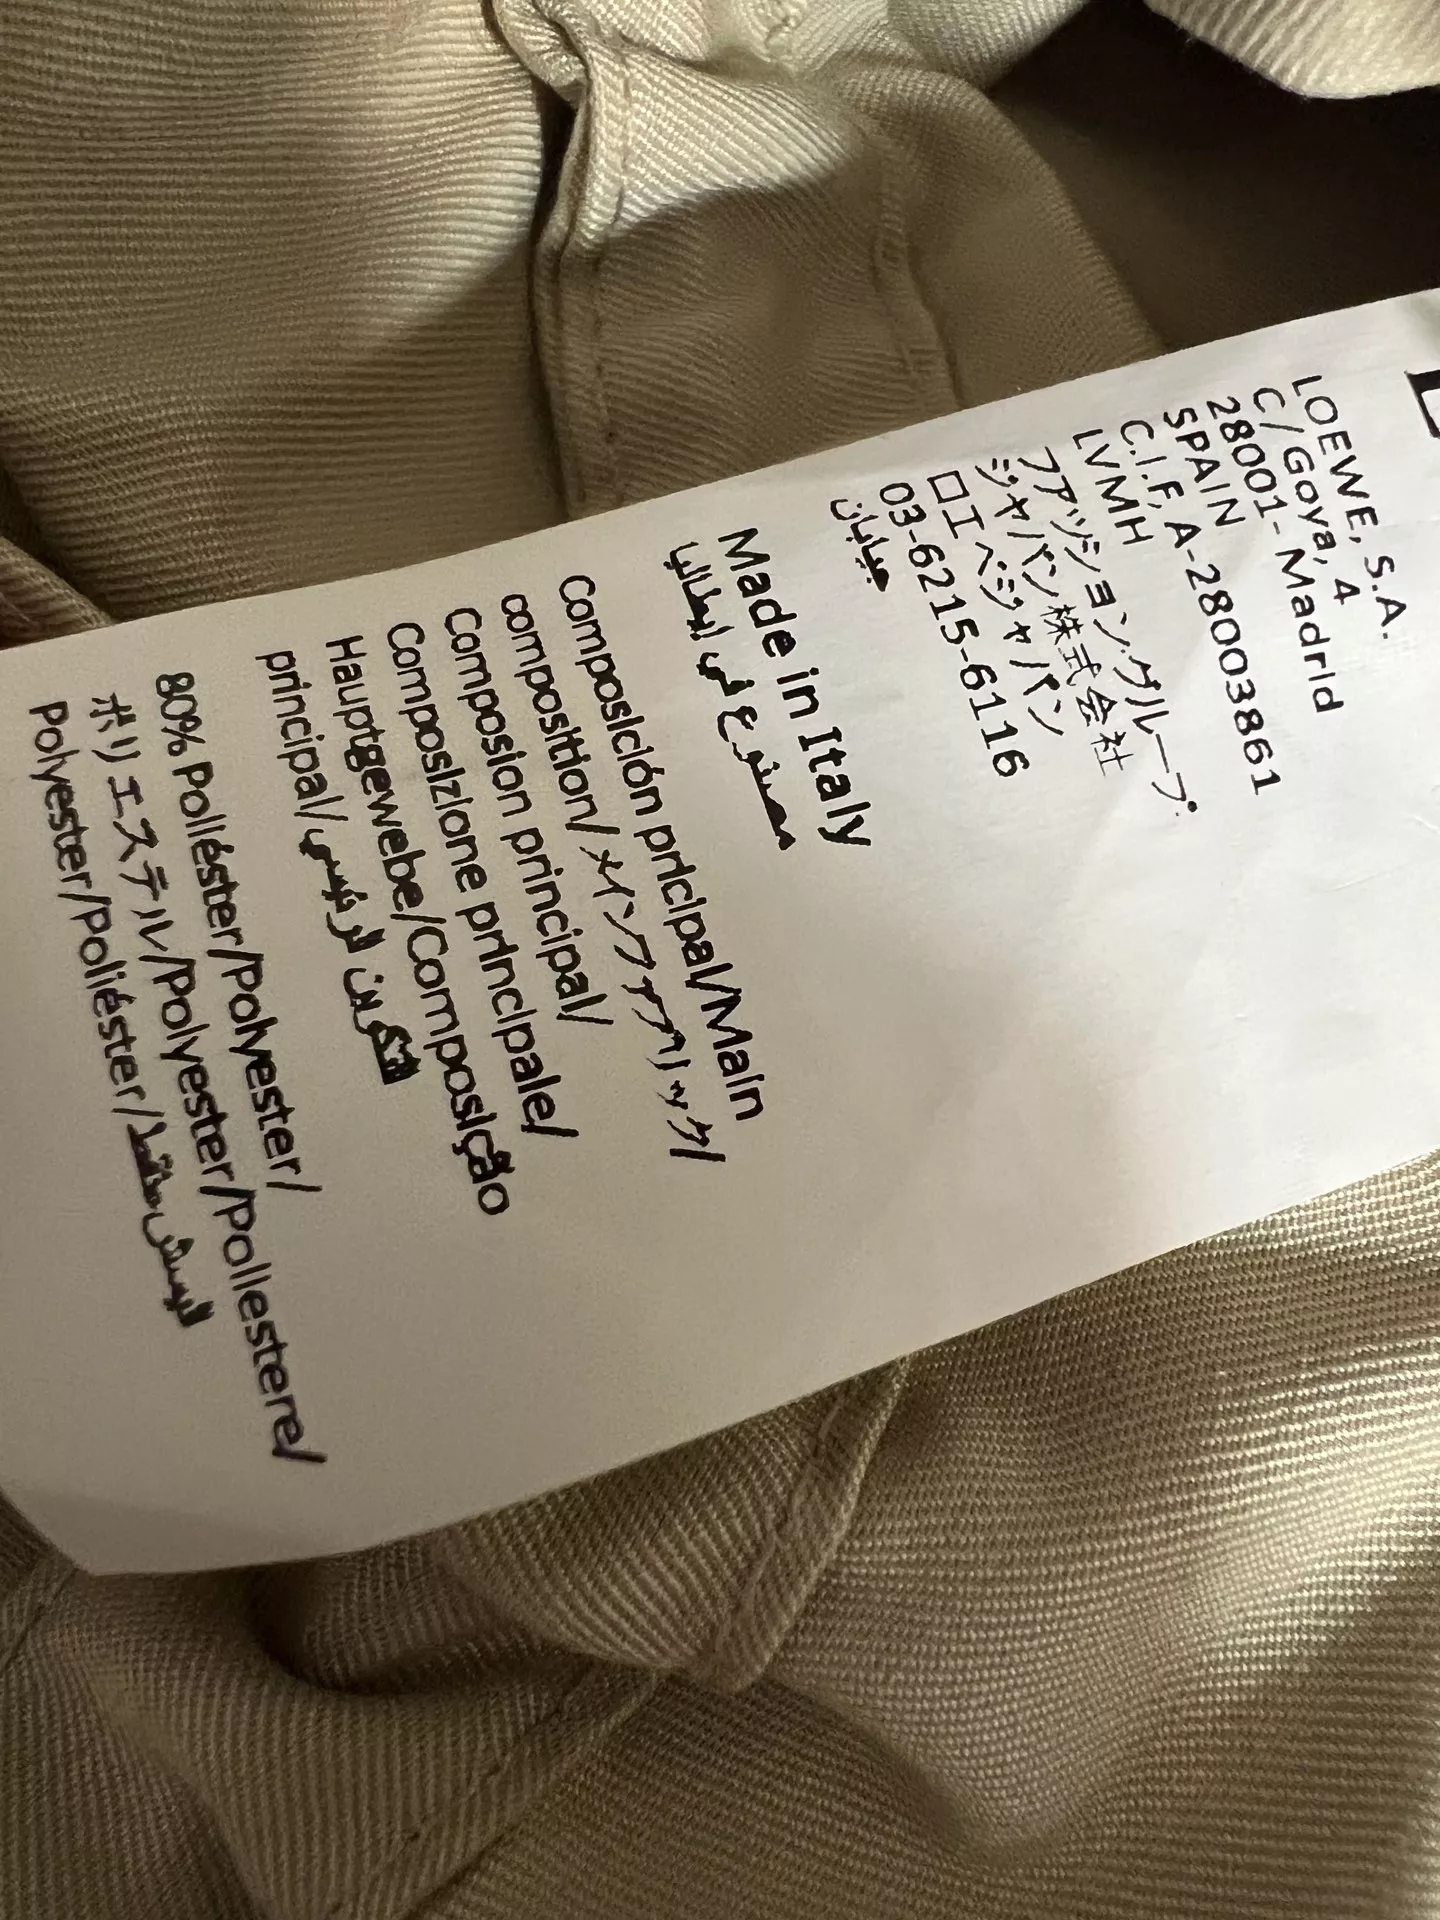 LOEWE, S.A.
C/ Goya, 4
28001- Madrid
SPAIN
C.I.F, A-28003861
LVMH
ファッション.グループ.
ジャパン株式会社
ロエベジャパン
03-6215-6116
جابان
Made in Italy
مصنوع في إيطاليا
Composición pricipal/Main
composition/メインファブリック/
Composion principal/
Composizione principale/
Hauptgewebe/Composição
principal/
80% Poliéster/Polyester/
ポリエステル/Polyester/Poliestere/
Polyester/Poliéster/